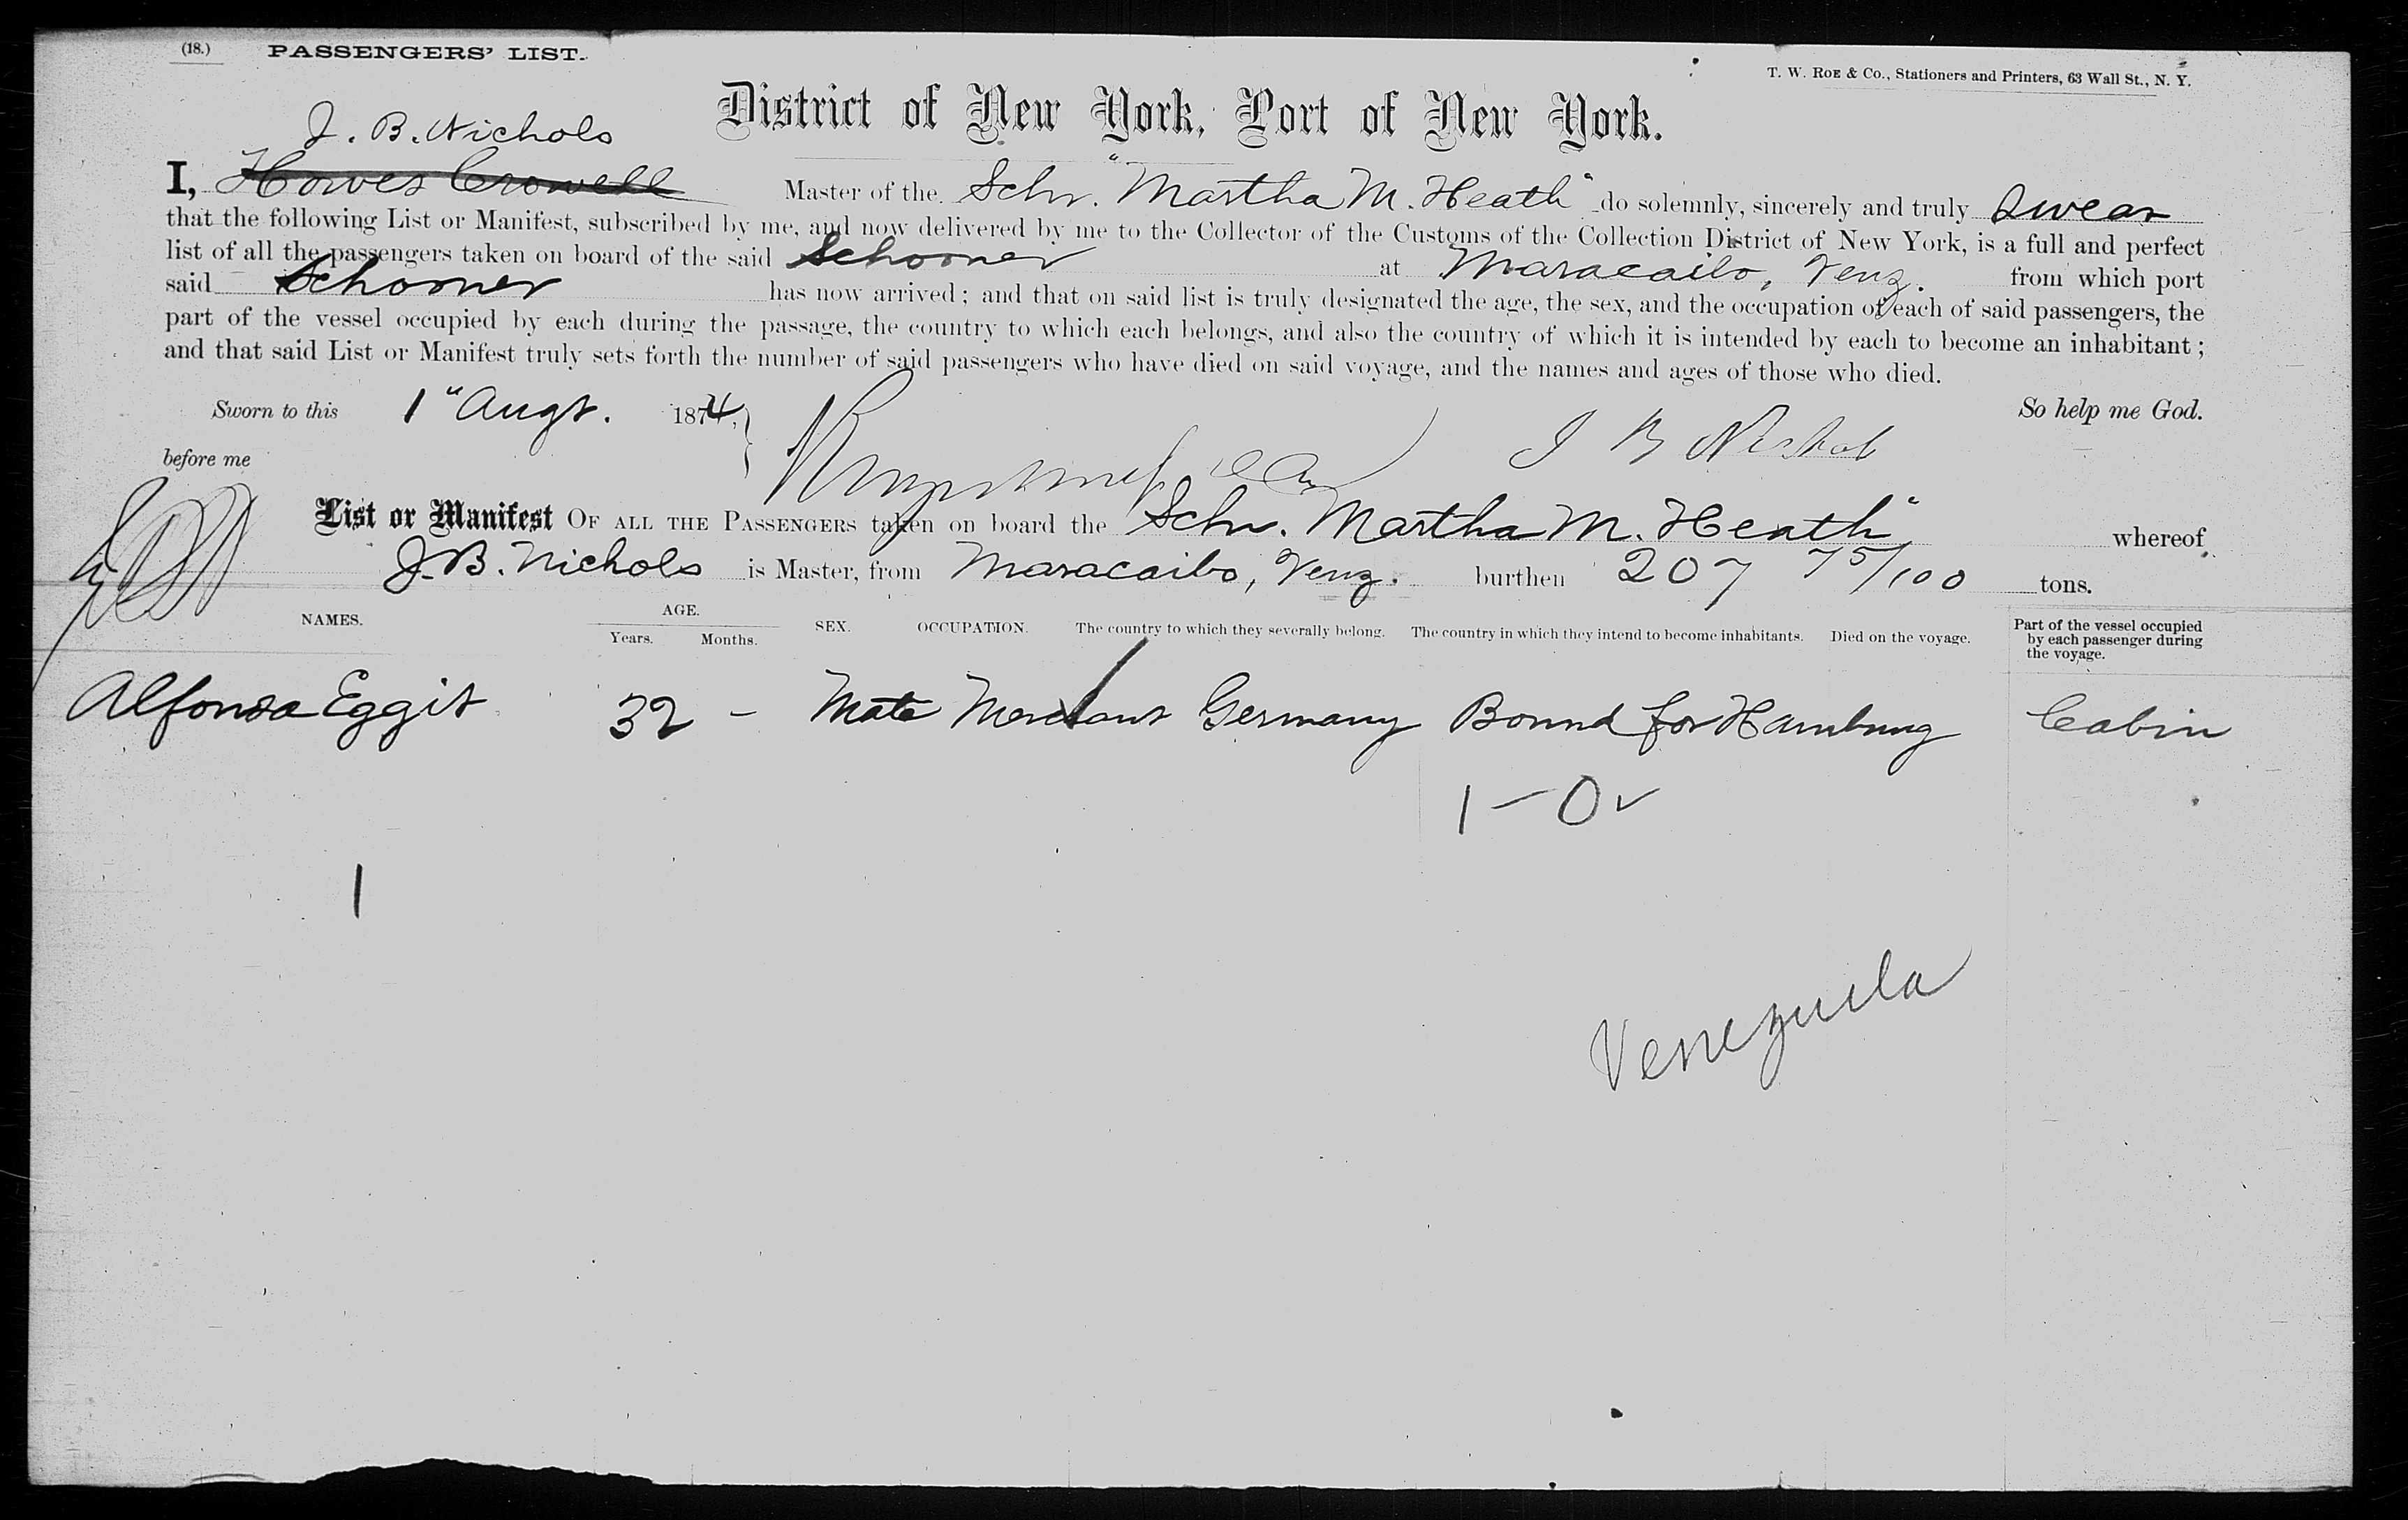 (18.) PASSENGERS' LIST.
T. W. ROE & Co., Stationers and Printers, 63 Wall St., N. Y.
District of New York, Port of New York.
J. B. Nichols
I, Howes Crowell Master of the Schr. "Martha M. Heath" do solemnly, sincerely and truly swear
that the following List or Manifest, subscribed by me, and now delivered by me to the Collector of the Customs of the Collection District of New York, is a full and perfect
list of all the passengers taken on board of the said Schooner at Maracaibo, Venz. from which port
said Schooner has now arrived; and that on said list is truly designated the age, the sex, and the occupation of each of said passengers, the
part of the vessel occupied by each during the passage, the country to which each belongs, and also the country of which it is intended by each to become an inhabitant;
and that said List or Manifest truly sets forth the number of said passengers who have died on said voyage, and the names and ages of those who died.
Sworn to this 1" Augt. 1874, So help me God.
before me J B Nichols
List or Manifest OF ALL THE PASSENGERS taken on board the "Schr. Martha M. Heath" whereof
J. B. Nichols is Master, from Maracaibo, Venz. burthen 207 75/100 tons.
NAMES. AGE. Years. Months. SEX. OCCUPATION. The country to which they severally belong. The country in which they intend to become inhabitants. Died on the voyage. Part of the vessel occupied by each passenger during the voyage.
Alfonso Eggit 32 - Male Merchant Germany Bound for Hamburg Cabin
1 - 0
1
Venezuela